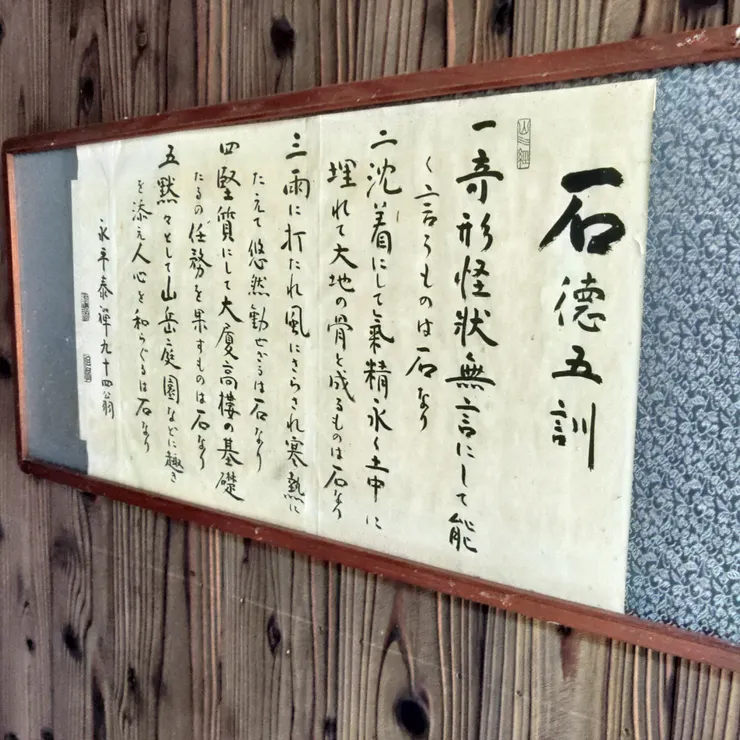 石德五訓
一奇形怪状無言にして能
く言うものは石なり
二沈着にして氣精永く土中に
埋れて大地の骨と成るものは石なり
三雨に打たれ風にさらされ寒熱に
たえて悠然動せざるは石なり
四堅質にして大廈高楼の基礎
たるの任務を果すものは石なり
五黙々として山岳庭園などに趣き
を添え人心を和らぐるは石なり
永平泰禅九十四翁